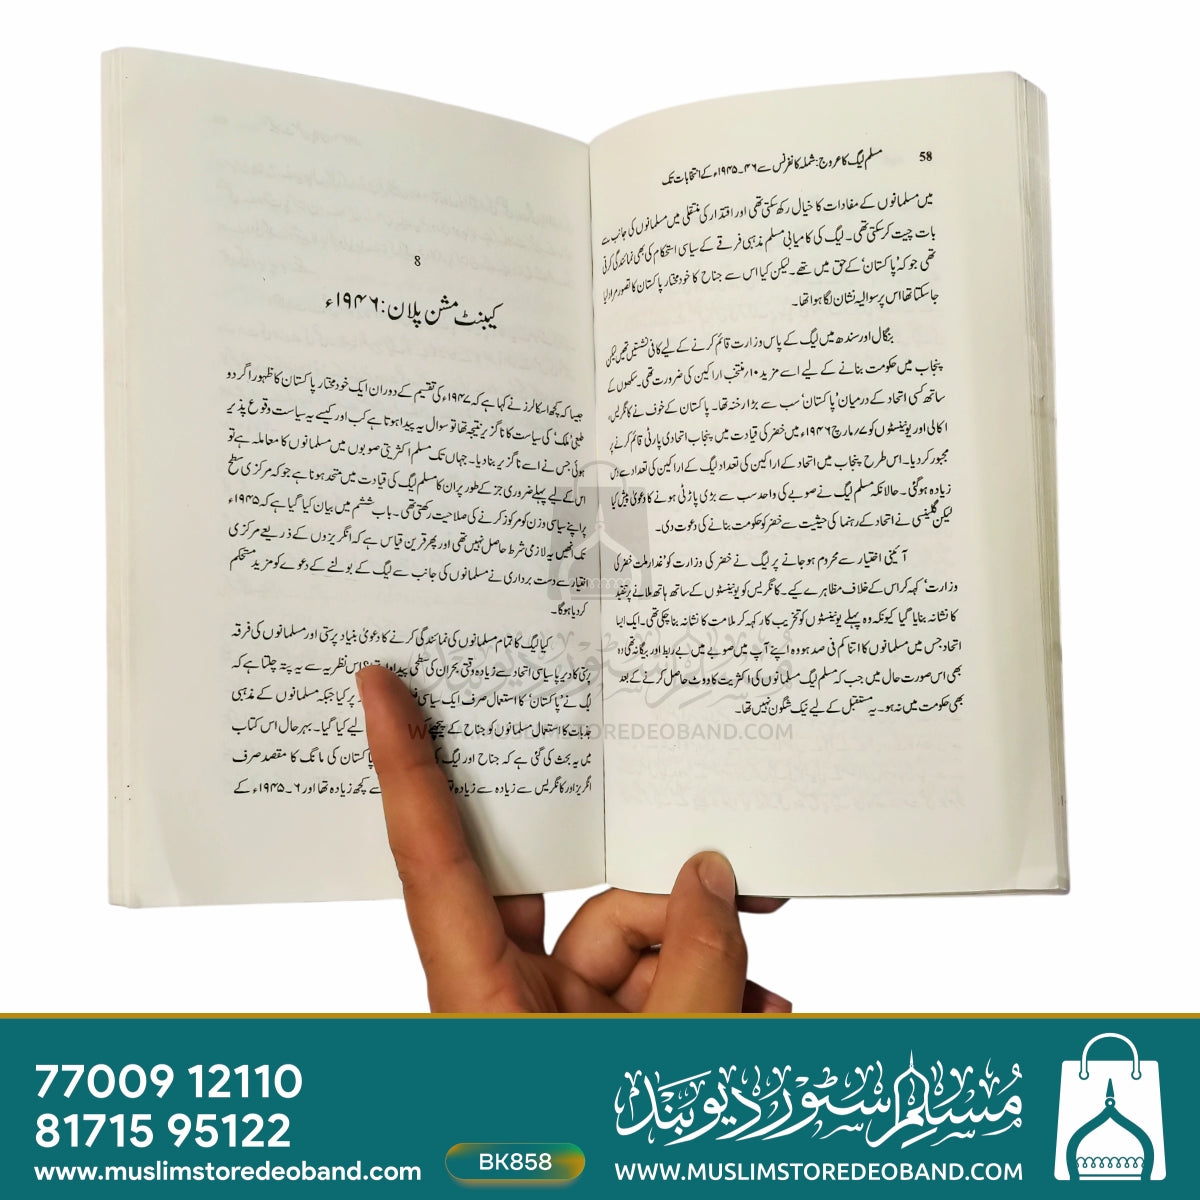 58
مسلم لیگ کا عروج: شملہ کانفرنس سے ۴۶۔۱۹۴۵ء کے انتخابات تک
میں مسلمانوں کے مفادات کا خیال رکھ سکتی تھی اور اقتدار کی منتقلی میں مسلمانوں کی جانب سے
بات چیت کر سکتی تھی۔ لیگ کی کامیابی مسلم مذہبی فرقے کے سیاسی استحکام کی بھی نمائندگی کرتی
تھی جو کہ ’پاکستان‘ کے حق میں تھے۔ لیکن کیا اس سے جناح کا خود مختار پاکستان کا تصور مراد لیا
جا سکتا تھا اس پر سوالیہ نشان لگا ہوا تھا۔
بنگال اور سندھ میں لیگ کے پاس وزارت قائم کرنے کے لیے کافی نشستیں تھیں لیکن
پنجاب میں حکومت بنانے کے لیے اسے مزید ۱۰ منتخب اراکین کی ضرورت تھی۔ سکھوں کے
ساتھ کسی اتحاد کے درمیان ’پاکستان‘ سب سے بڑا رخنہ تھا۔ پاکستان کے خوف نے کانگریس،
اکالی اور یونینسٹوں کو ۷ مارچ ۱۹۴۶ء میں خضر کی قیادت میں پنجاب اتحادی پارٹی قائم کرنے پر
مجبور کر دیا۔ اس طرح پنجاب میں اتحاد کے اراکین کی تعداد لیگ کے اراکین کی تعداد سے دس
زیادہ ہو گئی۔ حالانکہ مسلم لیگ نے صوبے کی واحد سب سے بڑی پارٹی ہونے کا دعویٰ پیش کیا
لیکن گلینسی نے اتحاد کے رہنما کی حیثیت سے خضر کو حکومت بنانے کی دعوت دی۔
آئینی اختیار سے محروم ہو جانے پر لیگ نے خضر کی وزارت کو ’غدار ملت خضر کی
وزارت‘ کہہ کر اس کے خلاف مظاہرے کیے۔ کانگریس کو یونینسٹوں کے ساتھ ہاتھ ملانے پر تنقید
کا نشانہ بنایا گیا کیونکہ وہ پہلے یونینسٹوں کو تخریب کار کہہ کر ملامت کا نشانہ بنا چکی تھی۔ ایک ایسا
اتحاد جس میں مسلمانوں کا اتنا کم فی صد ہو وہ اپنے آپ میں صوبے میں بے ربط اور بیگانہ تھی اور
بھی اس صورت حال میں جب کہ مسلم لیگ مسلمانوں کی اکثریت کا ووٹ حاصل کرنے کے بعد
بھی حکومت میں نہ ہو۔ یہ مستقبل کے لیے نیک شگون نہیں تھا۔
8
کیبنٹ مشن پلان: ۱۹۴۶ء
جیسا کہ کچھ اسکالرز نے کہا ہے کہ ۱۹۴۷ء کی تقسیم کے دوران ایک خود مختار پاکستان کا ظہور اگر دو
طبی ’ملک‘ کی سیاست کا ناگزیر نتیجہ تھا تو سوال یہ پیدا ہوتا ہے کب اور کیسے یہ سیاست وقوع پذیر
ہوئی جس نے اسے ناگزیر بنا دیا۔ جہاں تک مسلم اکثریتی صوبوں میں مسلمانوں کا معاملہ ہے تو
اس کے لیے پہلے ضروری جز کے طور پر ان کا مسلم لیگ کی قیادت میں متحد ہونا ہے جو کہ مرکزی سطح
پر اپنے سیاسی وزن کو مرکوز کرنے کی صلاحیت رکھتی تھی۔ باب ششم میں بیان کیا گیا ہے کہ ۱۹۴۵ء
تک انھیں یہ لازمی شرط حاصل نہیں تھی اور پھر قرین قیاس ہے کہ انگریزوں کے ذریعے مرکزی
اختیار سے دست برداری نے مسلمانوں کی جانب سے لیگ کے بولنے کے دعوے کو مزید مستحکم
کر دیا ہوگا۔
کیا لیگ کا تمام مسلمانوں کی نمائندگی کرنے کا دعویٰ بنیاد پرستی اور مسلمانوں کی فرقہ
پرستی کا دیرپا سیاسی اتحاد سے زیادہ وقتی بحران کی سطحی پیداوار تھا؟ اس نظریہ سے یہ پتہ چلتا ہے کہ
لیگ نے ’پاکستان‘ کا استعمال صرف ایک سیاسی پر کیا جبکہ مسلمانوں کے مذہبی
جذبات کا استعمال مسلمانوں کو جناح کے پیچھے لیے کیا گیا۔ بہر حال اس کتاب
میں یہ بحث کی گئی ہے کہ جناح اور لیگ پاکستان کی مانگ کا مقصد صرف
انگریز اور کانگریس سے زیادہ سے زیادہ سے کچھ زیادہ تھا اور ۶۔۱۹۴۵ء کے
مسلم سٹور دیوبند
WWW.MUSLIMSTOREDEOBAND.COM
77009 12110
81715 95122
www.muslimstoredeoband.com
BK858
مسلم سٹور دیوبند
WWW.MUSLIMSTOREDEOBAND.COM